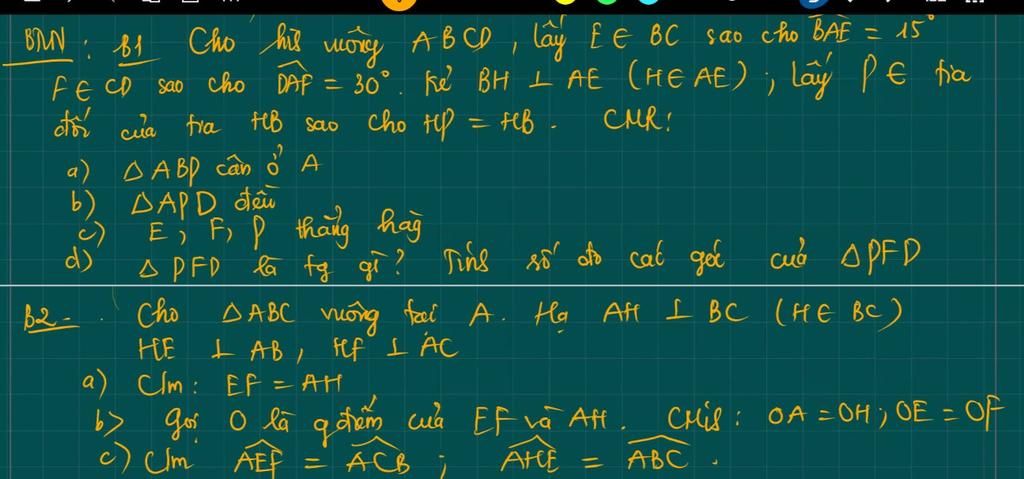 BTVN : B1 Cho hìs vuông ABCD, lấy E ∈ BC sao cho BAE = 15°
F ∈ CD sao cho DAF = 30°. Kẻ BH ⊥ AE (H ∈ AE) ; lấy P ∈ tia
đối của tia HB sao cho HP = HB. CMR:
a) △ABP cân ở A
b) △APD đều
c) E, F, P thẳng hàg
d) △PFD là tg gì? Tính số đo các góc của △PFD
B2 - . Cho △ABC vuông tại A. Hạ AH ⊥ BC (H ∈ BC)
HE ⊥ AB, HF ⊥ AC
a) C/m: EF = AH
b> gọi O là gđiểm của EF và AH. CMis: OA = OH; OE = OF
c) C/m AEF = ACB ; AHE = ABC .